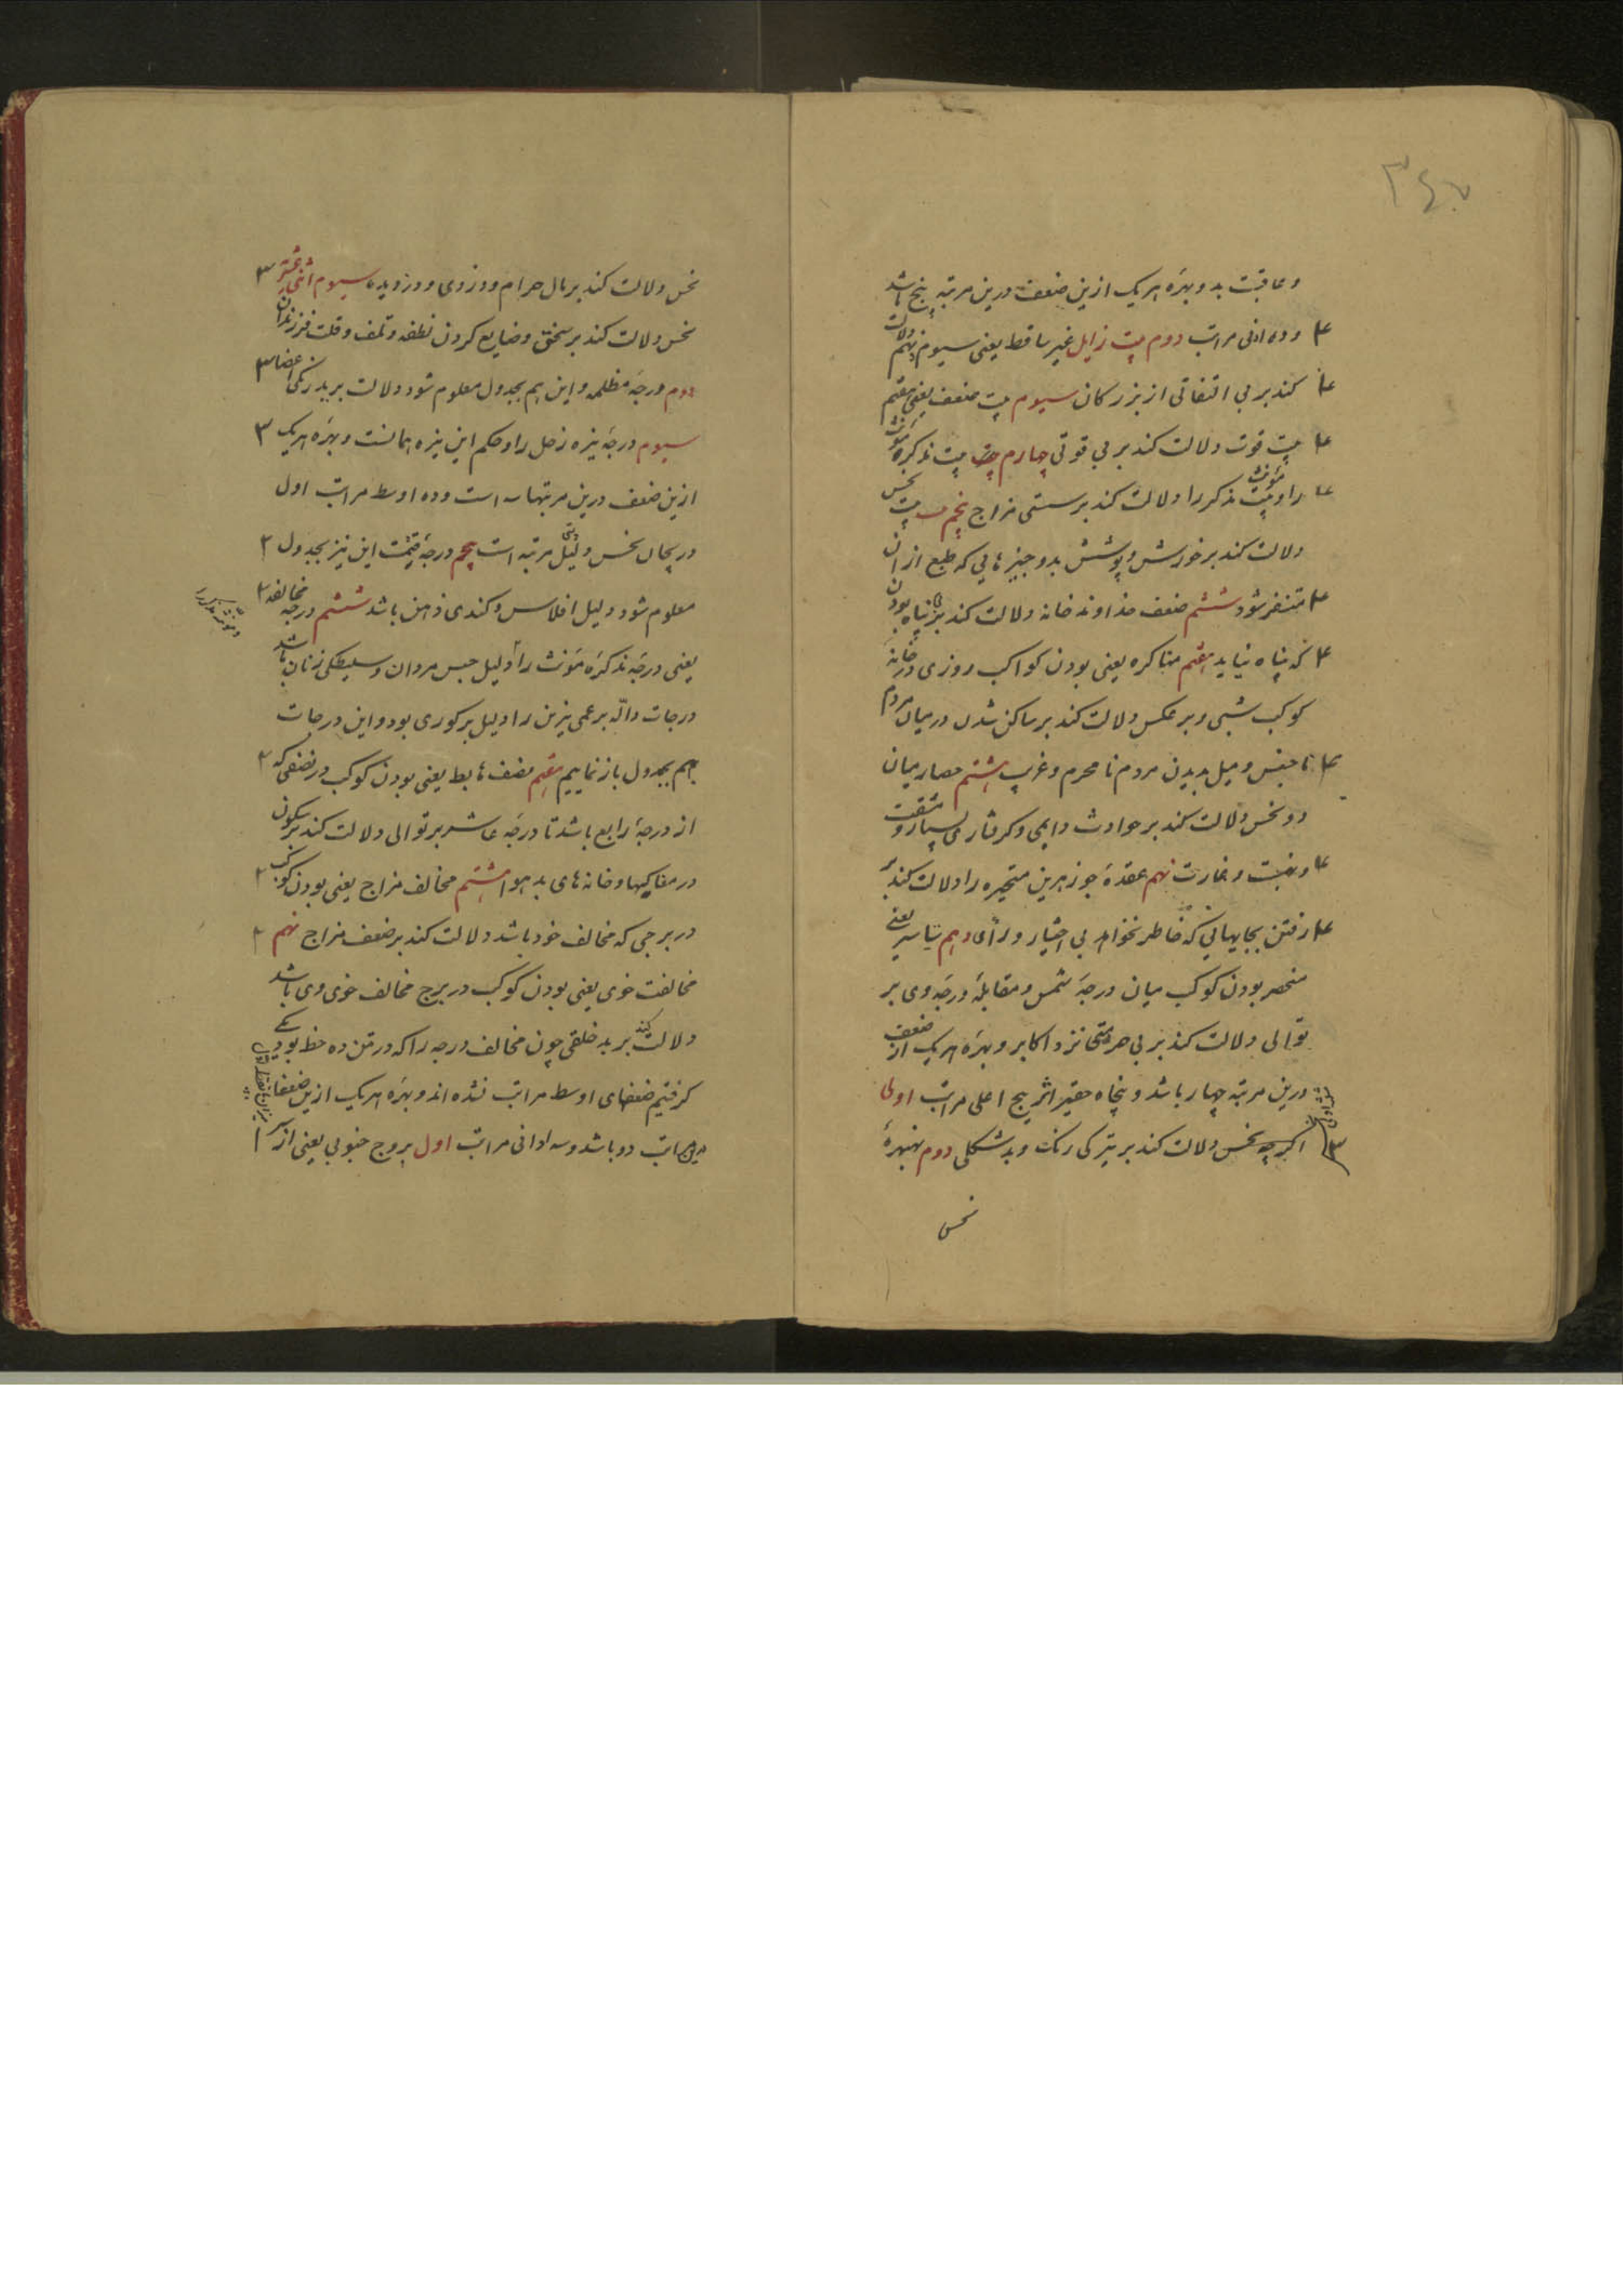 ۳۴۰
وعاقبت بد و بهرهٔ هر یک ازین ضعف درین مرتبه پنج باشد
و ده ادنی مراتب دوم بیت زایل غیر ساقط یعنی سیوم و نهم دلالت ۴
کند بر بی التفاتی از بزرگان سیوم بیت ضعف یعنی هفتم ۴
بیت قوت دلالت کند بر بی قوتی چهارم بیت مذکره مؤنث ۴
را و بیت مؤنث مذکر را دلالت کند بر سستی مزاج پنجم بیت نحس ۴
دلالت کند بر خورش و پوشش بد و چیزهایی که طبع از ان
متنفر شود ششم ضعف خداوند خانه دلالت کند بر پناه بودن ۴
که پناه نیاید هفتم مناکره یعنی بودن کواکب روزی در خانهٔ ۴
کوکب شبی و بر عکس دلالت کند بر ساکن شدن در میان مردم
نا جنس و میل بدیدن مردم نا محرم و غریب هشتم حصار میان ۴
دو نحس دلالت کند بر حوادث دایمی و گرفتاری بسیار و مشقت
و نهبت و غارت نهم عقدهٔ جوزهرین متحیره را دلالت کند بر ۴
رفتن بجایهایی که خاطر نخواهد بی اختیار و رأی دهم تیاسر یعنی ۴
منحصر بودن کوکب میان درجهٔ شمس و مقابلهٔ درجه وی بر
توالی دلالت کند بر بی حرمتی نزد اکابر و بهرهٔ هر یک از ضعف
درین مرتبه چهار باشد و پنجاه حقیر اثر پنج اعلی مراتب اولی
نحس دلالت کند بر تیرگی رنگ و بد شکلی دوم نهبهرهٔ ۳
نحس
نحس دلالت کند بر مال حرام و دزدی و دزدیده سیوم اثنی عشریه ۳
نحس دلالت کند بر سحق و ضایع کردن نطفه و تلف و قلت فرزندان
دوم درجهٔ مظلمه و این هم بجدول معلوم شود دلالت بر بد رنگی اعضا ۳
سیوم درجهٔ نیزه زحل را و حکم این نیزه همانست و بهرهٔ هر یک ۳
ازین ضعف درین مرتبها سه است و ده اوسط مراتب اول
پنجم درجهٔ قیمت این نیز بجدول ۲
معلوم شود دلیل افلاس و کندی ذهن باشد ششم درجه مخالفه ۲
و مؤنث مذکر را
یعنی درجهٔ مذکره مؤنث را دلیل حبس مردان و سلیطگی زنان باشد
درجات دالّه بر عمی نیرین را دلیل بر کوری بود و این درجات
هم بجدول باز نماییم هفتم نصف هابط یعنی بودن کوکب در نصفی که ۲
از درجهٔ رابع باشد تا درجه عاشر بر توالی دلالت کند بر سکون
در مغاکیها و خانه های بد هوا هشتم مخالف مزاج یعنی بودن کوکب ۲
در برجی که مخالف خود باشد دلالت کند بر ضعف مزاج نهم ۲
مخالفت خوی یعنی بودن کوکب در برج مخالف خوی وی باشد
دلالت کند بر بد خلقی چون مخالف درجه را که در متن ده حظ بود یکی
گرفتیم ضعفهای اوسط مراتب نشده اند و بهرهٔ هر یک ازین ضعفها
مراتب دو باشد و سه ادانی مراتب اول بروج جنوبی یعنی از سر ۱